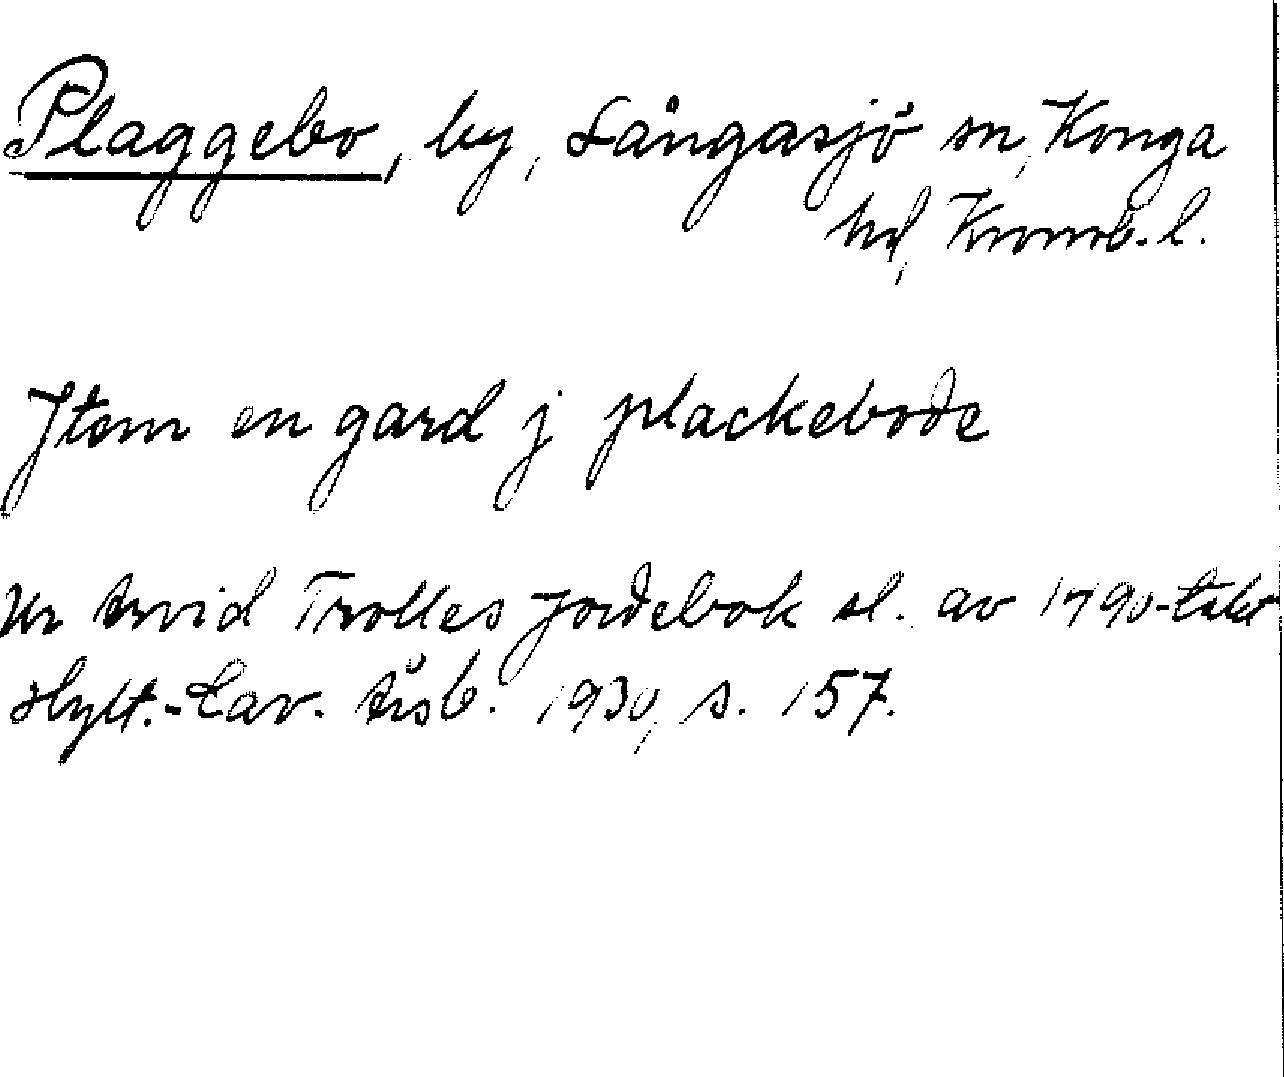 Plaggebo, by, Långasjö sn, Konga
hd, Kronob. l.
Jtem en gard j plackebode
Ur Arvid Trolles jordebok sl. av 1790-talet
Hylt.-Cav. Årsb. 1930, s. 157.